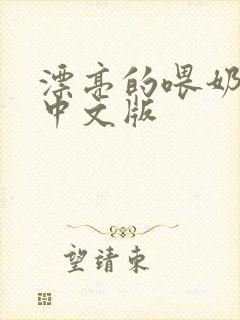 漂亮的喂奶
中文版
望请東